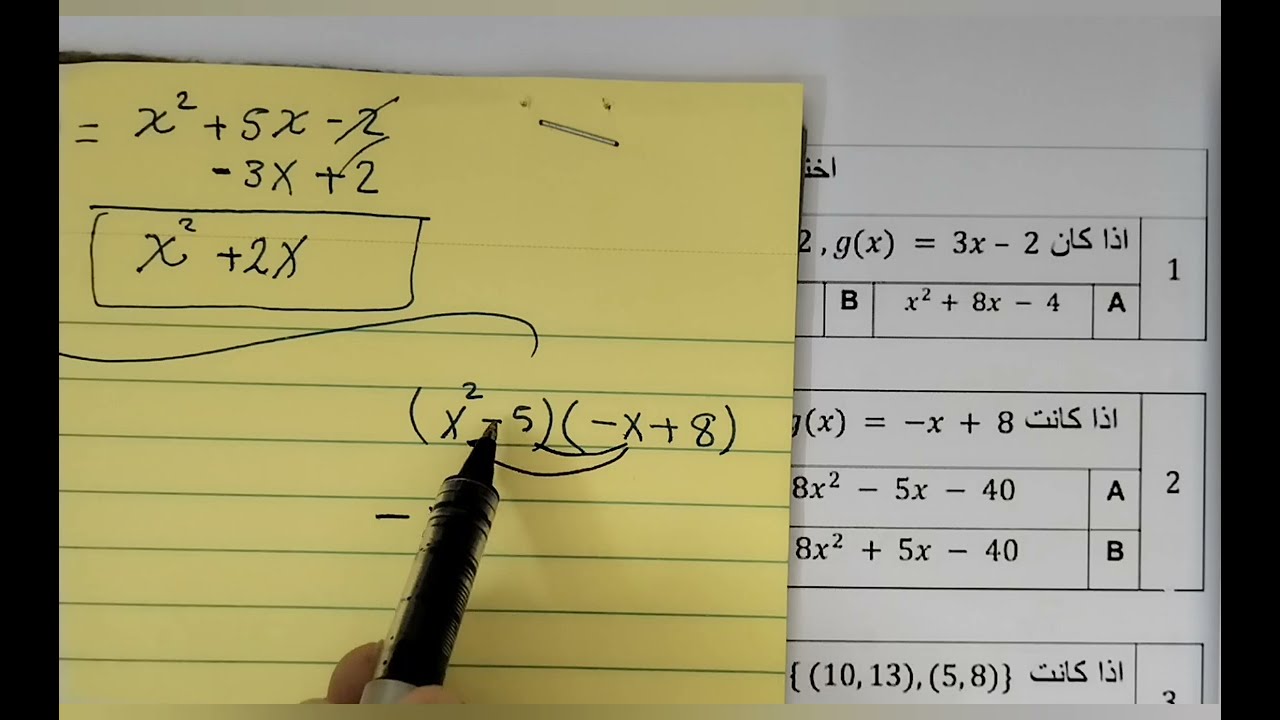 = x² + 5x - 2
- 3x + 2
x² + 2x
(x² - 5)(-x + 8)
-
1
اذا كان 2 , g(x) = 3x – 2
A x² + 8x − 4 B
2
اذا كانت g(x) = −x + 8
A 8x² − 5x − 40
B 8x² + 5x − 40
3
اذا كانت { (10, 13), (5, 8)}